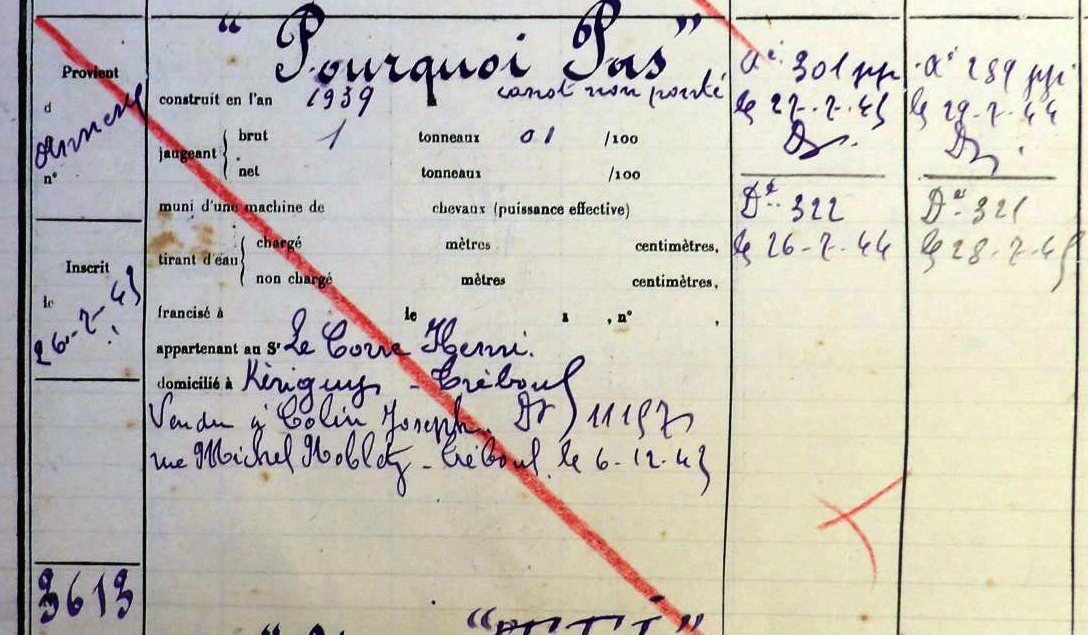 Provient
d
Annexe
n°
Inscrit
le
26-7-43
3613
"Pourquoi Pas"
construit en l'an 1939 canot non ponté
jaugeant { brut 1 tonneaux 01 /100
net tonneaux /100
muni d'une machine de chevaux (puissance effective)
tirant d'eau { chargé mètres centimètres,
non chargé mètres centimètres,
francisé à le , n° ,
appartenant au Sr Le Corre Henri.
domicilié à Kériguy - Tréboul
Vendu à Colin Joseph. Dz 11197
rue Michel Nobletz - Tréboul, le 6-12-43
301
le 27-7-43
322
le 26-7-44
289
le 29-7-44
321
le 28-7-45